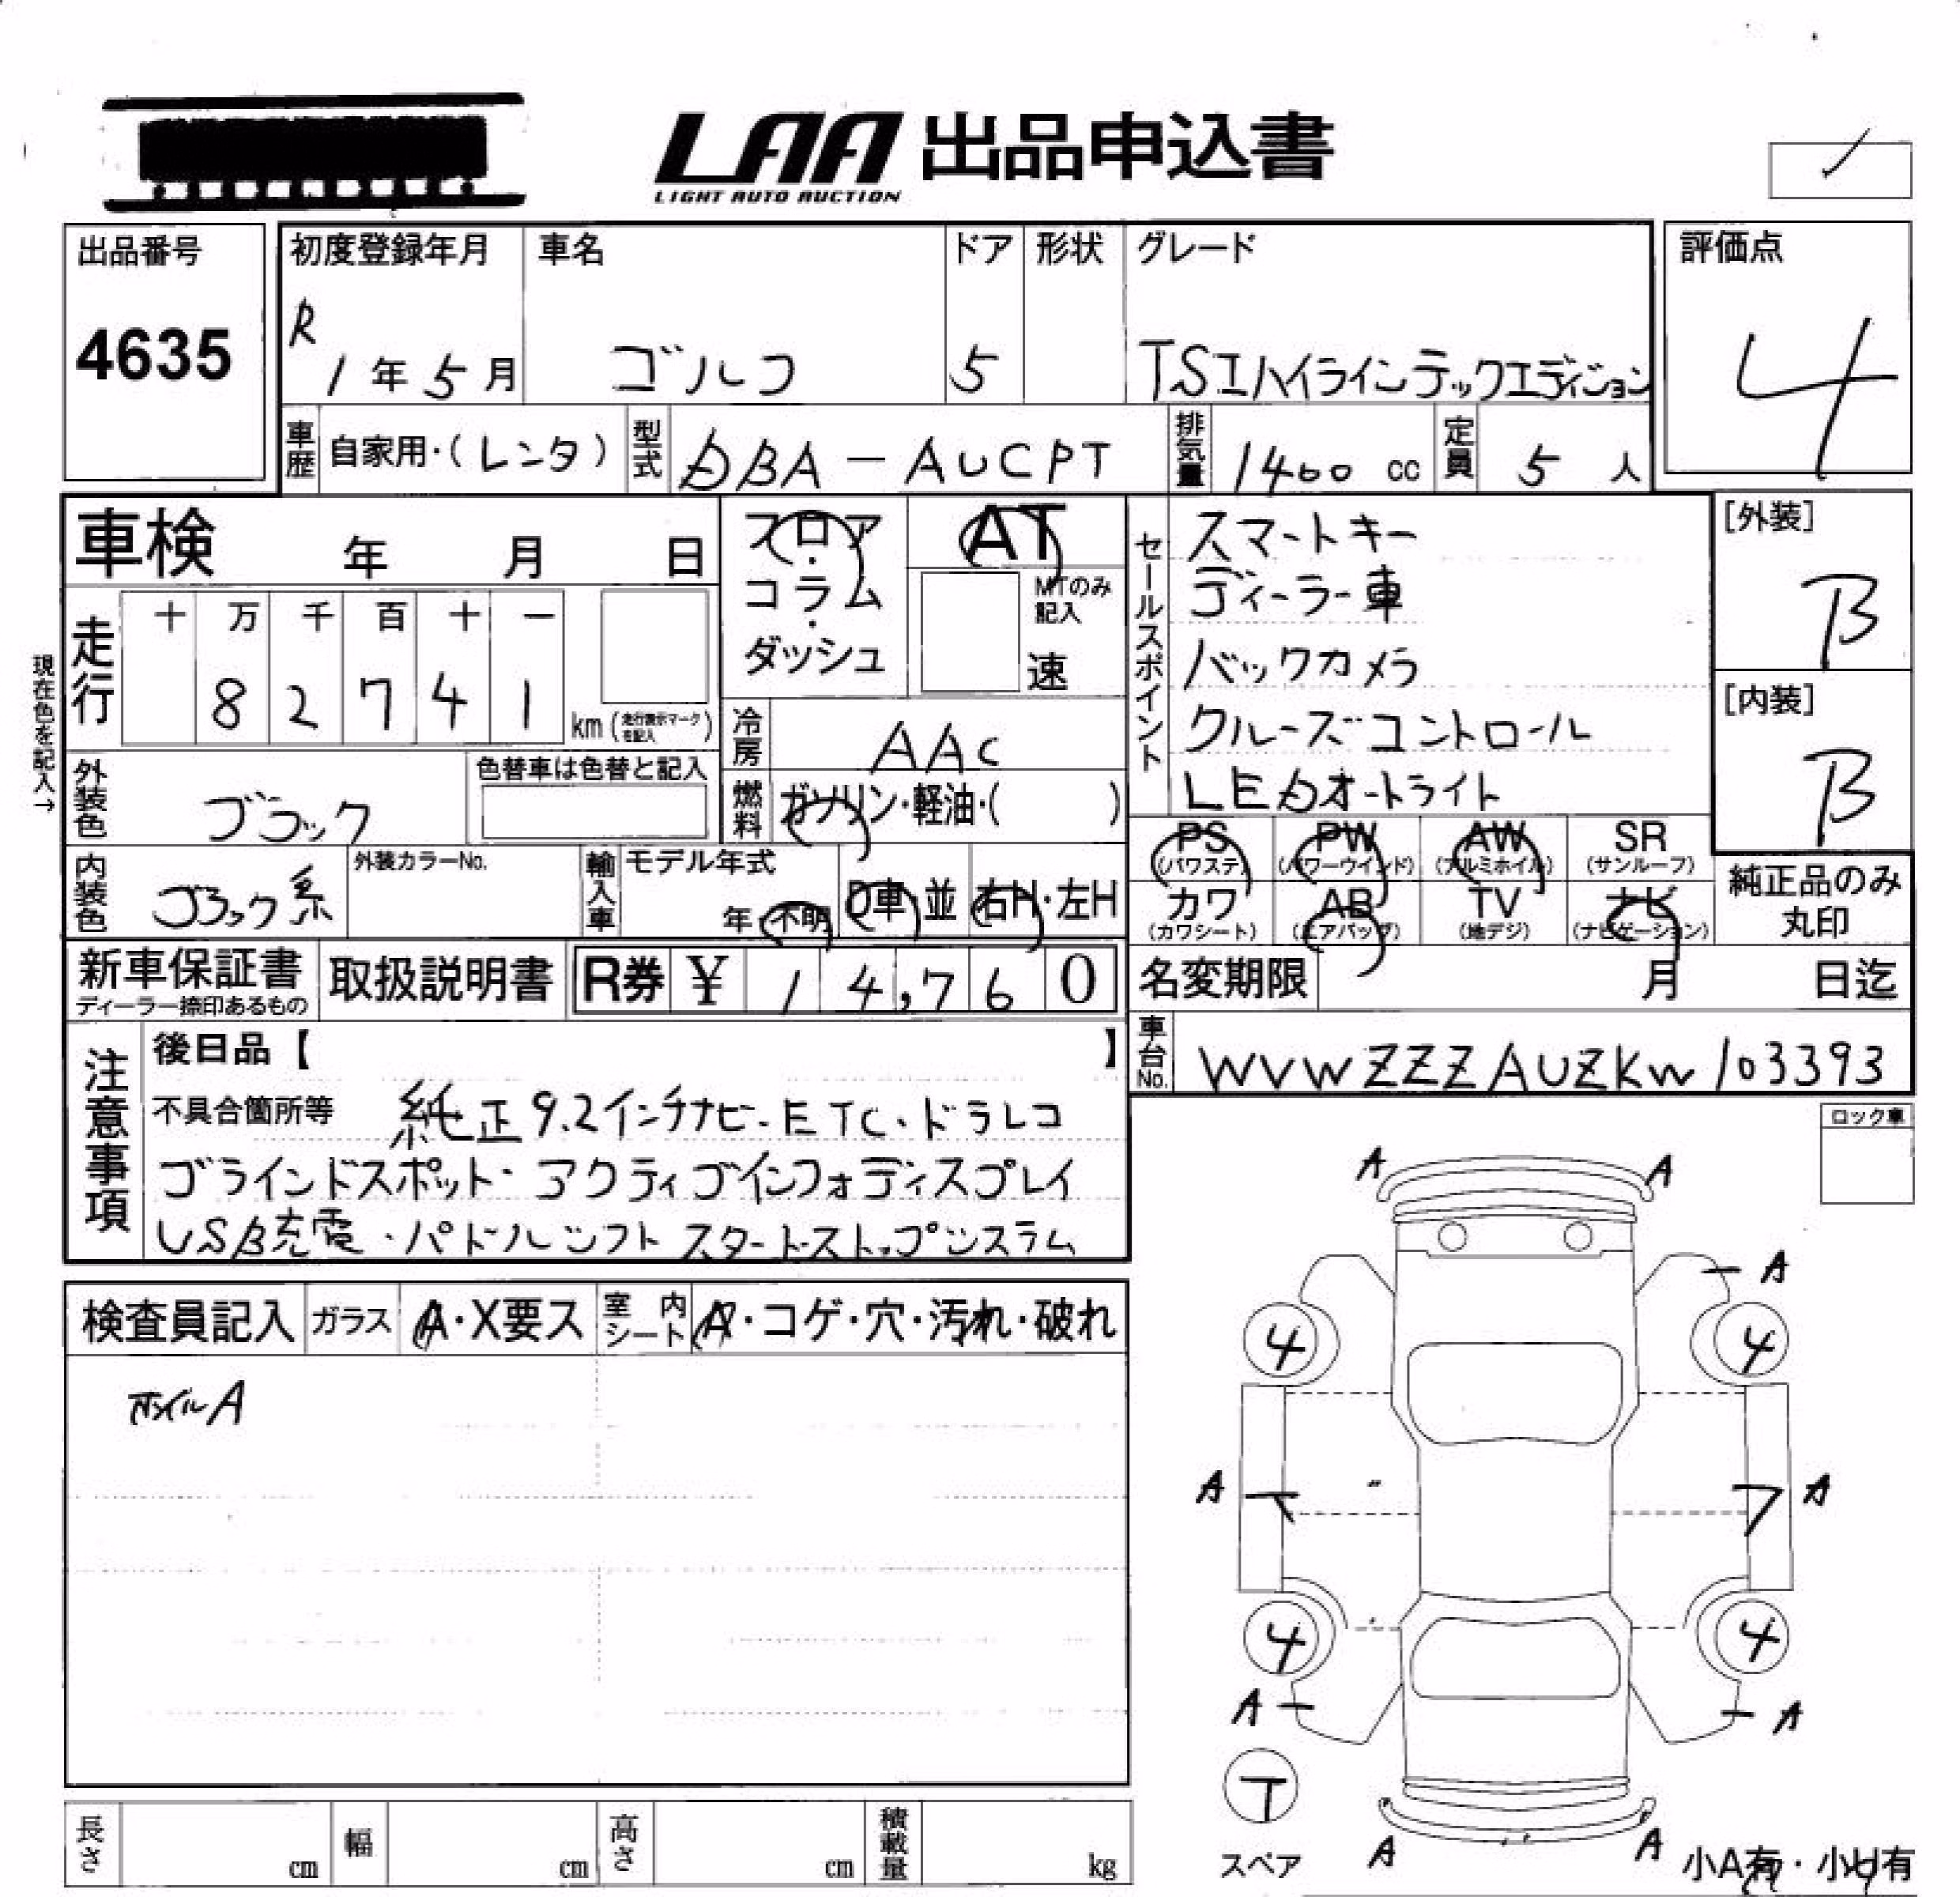 LAA 出品申込書
LIGHT AUTO AUCTION
出品番号
4635
初度登録年月
R 1年5月
車名
ゴルフ
ドア
5
形状
グレード
TSIハイラインテックエディション
評価点
4
車歴 自家用・(レンタ)
型式 DBA-AUCPT
排気量 1400 cc
定員 5 人
車検 年 月 日
フロア・コラム・ダッシュ
AT
MTのみ記入
速
セールスポイント
スマートキー
ディーラー車
バックカメラ
クルーズコントロール
LEDオートライト
[外装]
B
[内装]
B
現在色を記入→
走行 十 万 千 百 十 一
8 2 7 4 1 km (走行表示マークを記入)
冷房 AAC
燃料 ガソリン・軽油・( )
外装色 ブラック
色替車は色替と記入
PS (パワステ) PW (パワーウインド) AW (アルミホイル) SR (サンルーフ)
カワ (カワシート) AB (エアバッグ) TV (地デジ) ナビ (ナビゲーション)
純正品のみ丸印
内装色 ブラック系
外装カラーNo.
輸入車 モデル年式 年・不明 D車・並 右H・左H
新車保証書
ディーラー捺印あるもの
取扱説明書
R券 ¥ 1 4,7 6 0
名変期限 月 日迄
車台No. WVWZZZAUZKW103393
注意事項
後日品【 】
不具合箇所等 純正9.2インチナビ・ETC・ドラレコ
ブラインドスポット・アクティブインフォディスプレイ
USB充電・パドルシフト スタートストップシステム
ロック車
検査員記入 ガラス A・X要ス 室内シート A・コゲ・穴・汚れ・破れ
ホイルA
A A
A
4 4
A A
4 4
A A
T
スペア
A A
小A有・小U有
長さ cm 幅 cm 高さ cm 積載量 kg